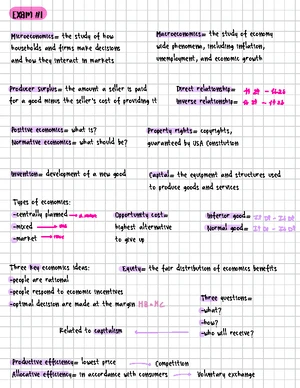 EXAM #1
Microeconomics= the study of how
households and firms make decisions
and how they interact in markets
Macroeconomics= the study of economy
wide phenomena, including inflation,
unemployment, and economic growth
Producer surplus= the amount a seller is paid
for a good minus the seller's cost of providing it
Direct relationship=
Inverse relationship=
Positive economics= what is?
Normative economics= what should be?
Property rights= copyrights,
guaranteed by USA Constitution
Invention= development of a new good
Capital= the equipment and structures used
to produce goods and services
Types of economies:
-centrally planned
-mixed
-market
Opportunity cost=
highest alternative
to give up
Inferior good=
Normal good=
Three key economics ideas:
-people are rational
-people respond to economic incentives
-optimal decision are made at the margin MB=MC
Equity= the fair distribution of economics benefits
Three questions=
-what?
-how?
-who will receive?
Related to capitalism
Productive efficiency= lowest price
Competition
Allocative efficiency= in accordance with consumers
Voluntary exchange